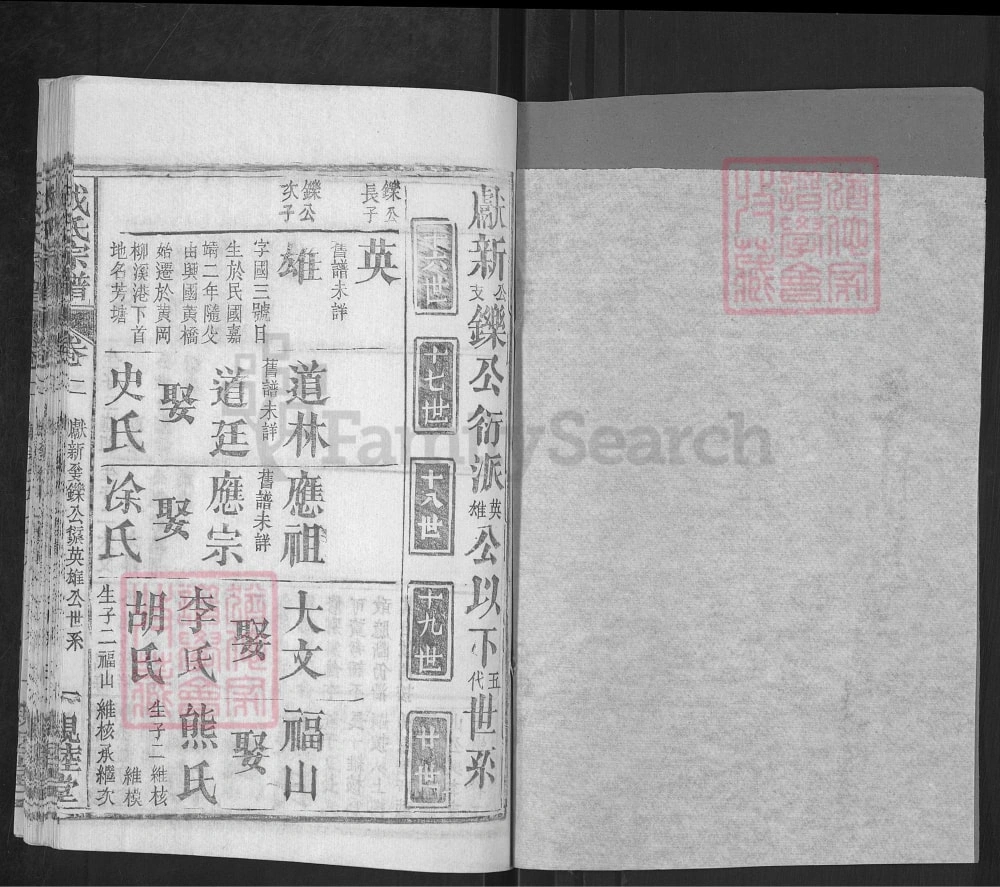 獻新公支鑠公衍派英雄公以下五代世系
十六世
十七世
十八世
十九世
廿世
鑠公長子
英
舊譜未詳
鑠公次子
雄
字國三號日
生於民國嘉
靖二年隨父
由興國黃橋
始遷於黃岡
柳溪港下首
地名芳塘
道林
舊譜未詳
道廷
娶
史氏
應祖
舊譜未詳
應宗
娶
涂氏
大文
娶
李氏
胡氏
生子二福山
福山
娶
熊氏
生子二維核
維模
維核承繼次
氏宗譜
卷二
獻新
鑠公
英雄公世系
一
親睦堂
FamilySearch